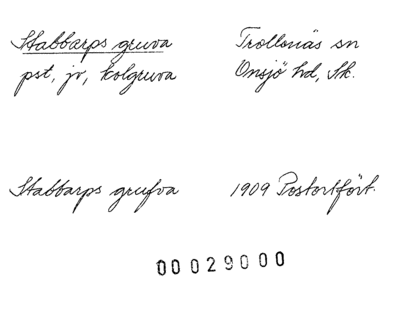 Stabbarps gruva
Trollenäs sn
pst, jv, kolgruva
Onsjö hd, Sk.
Stabbarps grufva
1909 Postortsfört.
00029000